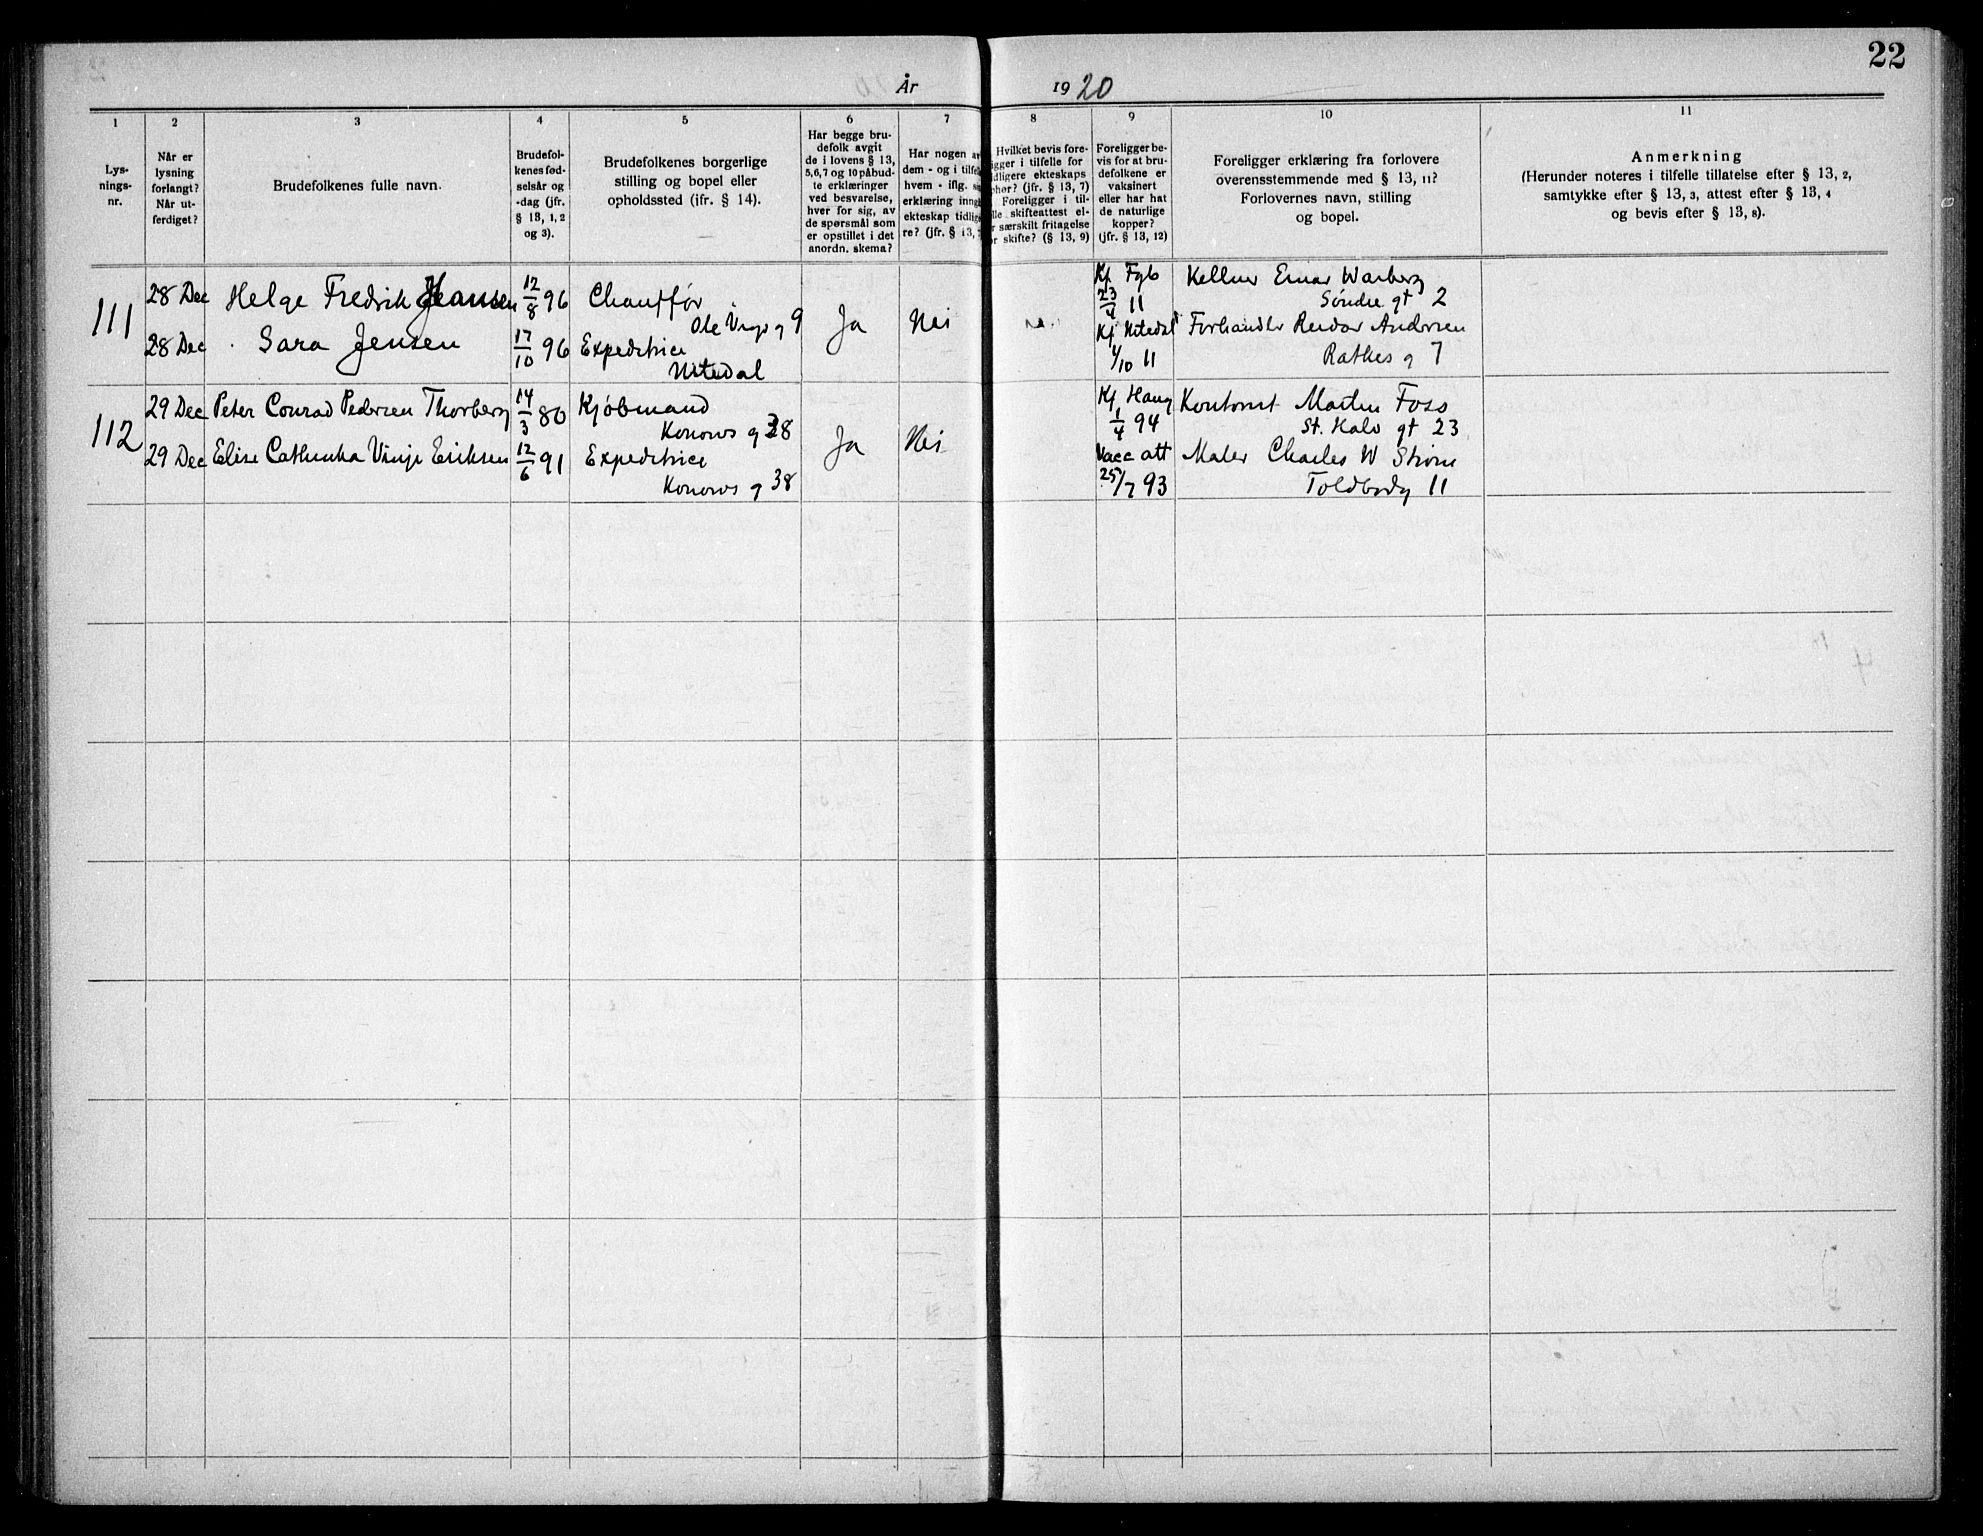 22
År 1920
1
2
3
4
5
6
7
8
9
10
11
Lys-
nings-
nr.
Når er
lysning
forlangt?
Når ut-
ferdiget?
Brudefolkenes fulle navn.
Brudefol-
kenes fød-
selsår og
-dag (jfr.
§ 13, 1, 2
og 3).
Brudefolkenes borgerlige
stilling og bopel eller
opholdssted (jfr. § 14).
Har begge bru-
defolk avgit
de i lovens § 13,
5,6,7 og 10 påbud-
te erklæringer
ved besvarelse,
hver for sig, av
de spørsmål som
er opstillet i det
anordn. skema?
Har nogen
dem - og i
hvem - iflg.
erklæring
ekteskap
re? (jfr. § 13,
Hvilket bevis fore-
i tilfelle for
ekteskaps
(jfr. § 13, 7)
Foreligger i til-
skifteattest el-
særskilt fritagelse
skifte? (§ 13, 9)
Foreligger be-
vis for at bru-
defolkene er
vaksinert
eller har hat
de naturlige
kopper?
(jfr. § 13, 12)
Foreligger erklæring fra forlovere
overensstemmende med § 13, 11?
Forlovernes navn, stilling
og bopel.
Anmerkning
(Herunder noteres i tilfelle tillatelse efter § 13, 2,
samtykke efter § 13, 3, attest efter § 13, 4
og bevis efter § 13, 8).
111
28 Dec Helge Fredrik 12/8 96 Chauffør
Ole Vigs g 9
28 Dec Sara Jensen 17/10 96 Expeditrice
Nitedal
Ja Nei
Kj Fgb
23/4 11
Kj Nitedal
1/10 11
Kellner Einar Warberg
Søndre gt 2
Forhandler Reidar Andersen
Rathes g 7
112
29 Dec Peter Conrad Pedersen Thorberg 14/3 80 Kjøbmand
Konows g 38
29 Dec Elise Cathinka Vinje Eriksen 12/6 91 Expeditrice
Konows g 38
Ja Nei
Kj Haug
1/4 94
Vacc att
25/7 93
Kontorist Martin Foss
St. Halv gt 23
Maler Charles W Strøm
Toldbodg 11